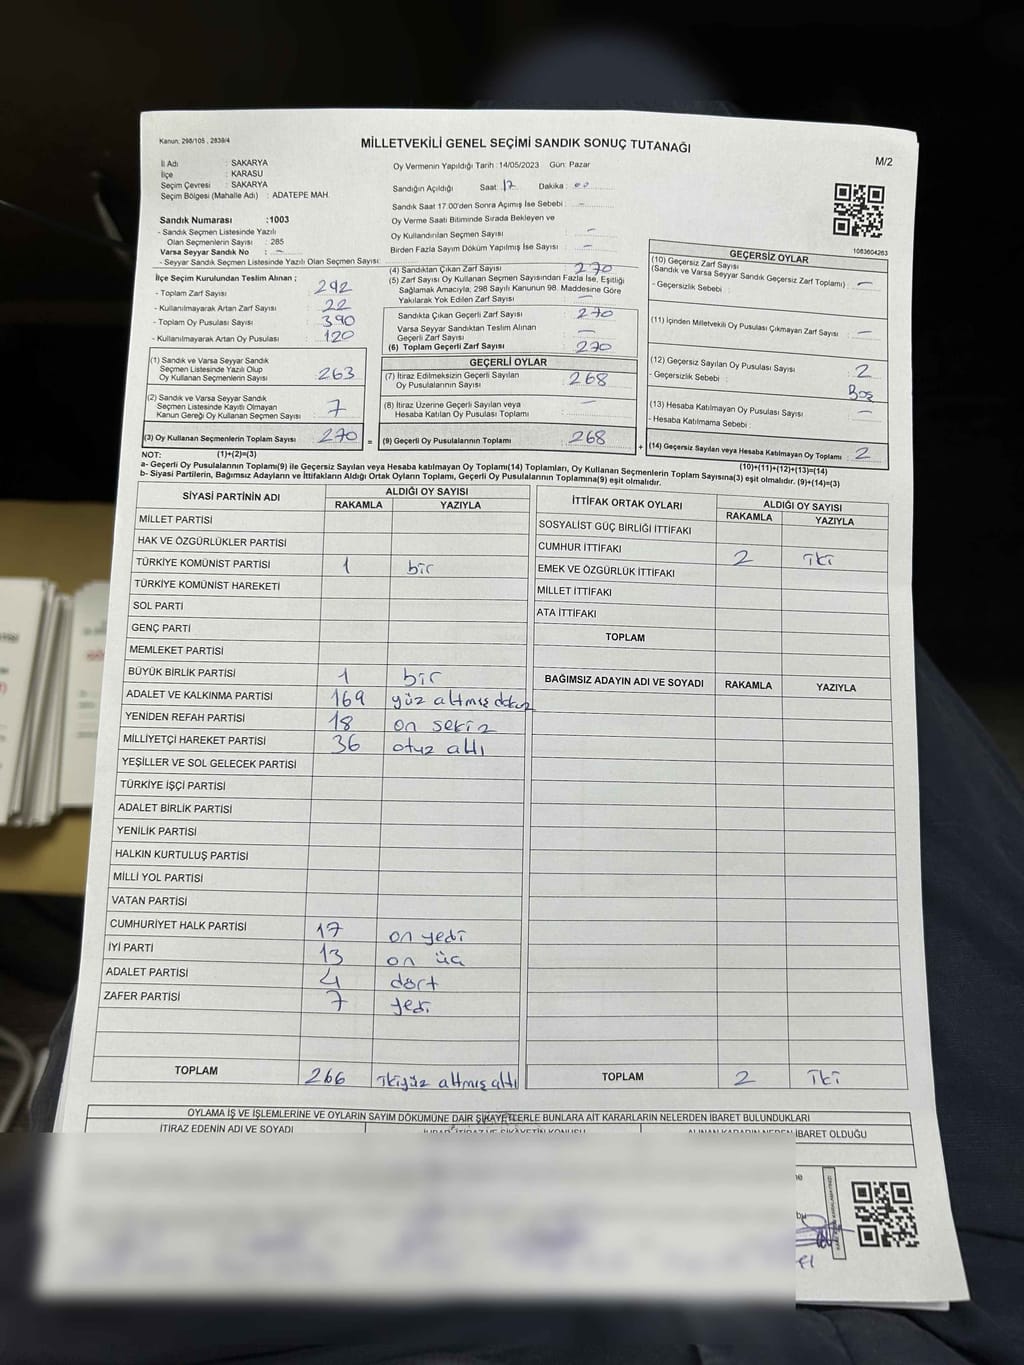 Kanun: 298/105 , 2839/4
MİLLETVEKİLİ GENEL SEÇİMİ SANDIK SONUÇ TUTANAĞI
M/2
İl Adı : SAKARYA
İlçe : KARASU
Seçim Çevresi : SAKARYA
Seçim Bölgesi (Mahalle Adı) : ADATEPE MAH.
Sandık Numarası :1003
- Sandık Seçmen Listesinde Yazılı
Olan Seçmenlerin Sayısı : 285
Varsa Seyyar Sandık No : -
- Seyyar Sandık Seçmen Listesinde Yazılı Olan Seçmen Sayısı:
Oy Vermenin Yapıldığı Tarih : 14/05/2023 Gün: Pazar
Sandığın Açıldığı Saat: 17 Dakika : 00
Sandık Saat 17.00'den Sonra Açımış İse Sebebi : -
Oy Verme Saati Bitiminde Sırada Bekleyen ve
Oy Kullandırılan Seçmen Sayısı -
Birden Fazla Sayım Döküm Yapılmış İse Sayısı -
1083604263
İlçe Seçim Kurulundan Teslim Alınan ;
- Toplam Zarf Sayısı 292
- Kullanılmayarak Artan Zarf Sayısı 22
- Toplam Oy Pusulası Sayısı 390
- Kullanılmayarak Artan Oy Pusulası 120
(1) Sandık ve Varsa Seyyar Sandık
Seçmen Listesinde Yazılı Olup
Oy Kullanan Seçmenlerin Sayısı 263
(2) Sandık ve Varsa Seyyar Sandık
Seçmen Listesinde Kayıtlı Olmayan
Kanun Gereği Oy Kullanan Seçmen Sayısı 7
(3) Oy Kullanan Seçmenlerin Toplam Sayısı 270 =
(4) Sandıktan Çıkan Zarf Sayısı 270
(5) Zarf Sayısı Oy Kullanan Seçmen Sayısından Fazla İse, Eşitliği
Sağlamak Amacıyla; 298 Sayılı Kanunun 98. Maddesine Göre
Yakılarak Yok Edilen Zarf Sayısı -
Sandıkta Çıkan Geçerli Zarf Sayısı 270
Varsa Seyyar Sandıktan Teslim Alınan
Geçerli Zarf Sayısı -
(6) Toplam Geçerli Zarf Sayısı 270
GEÇERLİ OYLAR
(7) İtiraz Edilmeksizin Geçerli Sayılan
Oy Pusulalarının Sayısı 268
(8) İtiraz Üzerine Geçerli Sayılan veya
Hesaba Katılan Oy Pusulası Toplamı -
(9) Geçerli Oy Pusulalarının Toplamı 268 +
GEÇERSİZ OYLAR
(10) Geçersiz Zarf Sayısı
(Sandık ve Varsa Seyyar Sandık Geçersiz Zarf Toplamı) : -
- Geçersizlik Sebebi :
(11) İçinden Milletvekili Oy Pusulası Çıkmayan Zarf Sayısı -
(12) Geçersiz Sayılan Oy Pusulası Sayısı 2
- Geçersizlik Sebebi : Boş
(13) Hesaba Katılmayan Oy Pusulası Sayısı -
- Hesaba Katılmama Sebebi :
(14) Geçersiz Sayılan veya Hesaba Katılmayan Oy Toplamı 2
NOT: (1)+(2)=(3) (10)+(11)+(12)+(13)=(14)
a- Geçerli Oy Pusulalarının Toplamı(9) ile Geçersiz Sayılan veya Hesaba katılmayan Oy Toplamı(14) Toplamları, Oy Kullanan Seçmenlerin Toplam Sayısına(3) eşit olmalıdır. (9)+(14)=(3)
b- Siyasi Partilerin, Bağımsız Adayların ve İttifakların Aldığı Ortak Oyların Toplamı, Geçerli Oy Pusulalarının Toplamına(9) eşit olmalıdır.
SİYASİ PARTİNİN ADI ALDIĞI OY SAYISI
RAKAMLA YAZIYLA
MİLLET PARTİSİ
HAK VE ÖZGÜRLÜKLER PARTİSİ
TÜRKİYE KOMÜNİST PARTİSİ 1 bir
TÜRKİYE KOMÜNİST HAREKETİ
SOL PARTİ
GENÇ PARTİ
MEMLEKET PARTİSİ
BÜYÜK BİRLİK PARTİSİ 1 bir
ADALET VE KALKINMA PARTİSİ 169 yüz altmış dokuz
YENİDEN REFAH PARTİSİ 18 on sekiz
MİLLİYETÇİ HAREKET PARTİSİ 36 otuz altı
YEŞİLLER VE SOL GELECEK PARTİSİ
TÜRKİYE İŞÇİ PARTİSİ
ADALET BİRLİK PARTİSİ
YENİLİK PARTİSİ
HALKIN KURTULUŞ PARTİSİ
MİLLİ YOL PARTİSİ
VATAN PARTİSİ
CUMHURİYET HALK PARTİSİ 17 on yedi
İYİ PARTİ 13 on üç
ADALET PARTİSİ 4 dört
ZAFER PARTİSİ 7 yedi
TOPLAM 266 ikiyüz altmış altı
İTTİFAK ORTAK OYLARI ALDIĞI OY SAYISI
RAKAMLA YAZIYLA
SOSYALİST GÜÇ BİRLİĞİ İTTİFAKI
CUMHUR İTTİFAKI 2 iki
EMEK VE ÖZGÜRLÜK İTTİFAKI
MİLLET İTTİFAKI
ATA İTTİFAKI
TOPLAM
BAĞIMSIZ ADAYIN ADI VE SOYADI RAKAMLA YAZIYLA
TOPLAM 2 iki
OYLAMA İŞ VE İŞLEMLERİNE VE OYLARIN SAYIM DÖKÜMÜNE DAİR ŞİKAYETLERLE BUNLARA AİT KARARLARIN NELERDEN İBARET BULUNDUKLARI
İTİRAZ EDENİN ADI VE SOYADI
İBARET OLDUĞU